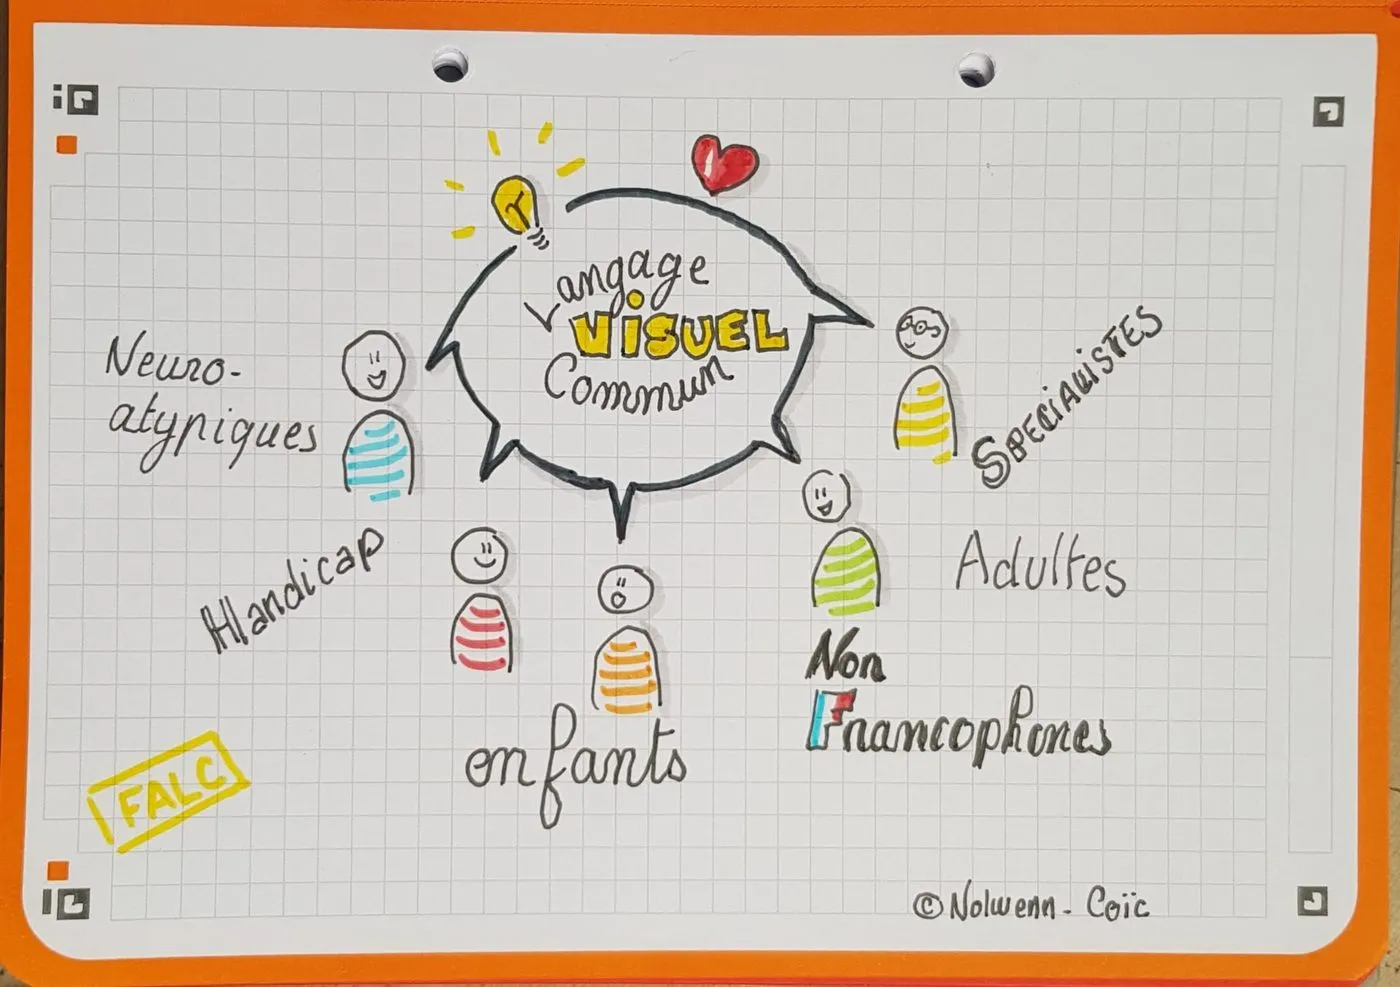 Langage
VISUEL
Commun
Neuro-
atypiques
SPECIALISTES
Handicap
Adultes
enfants
Non
Francophones
FALC
© Nolwenn - Coïc